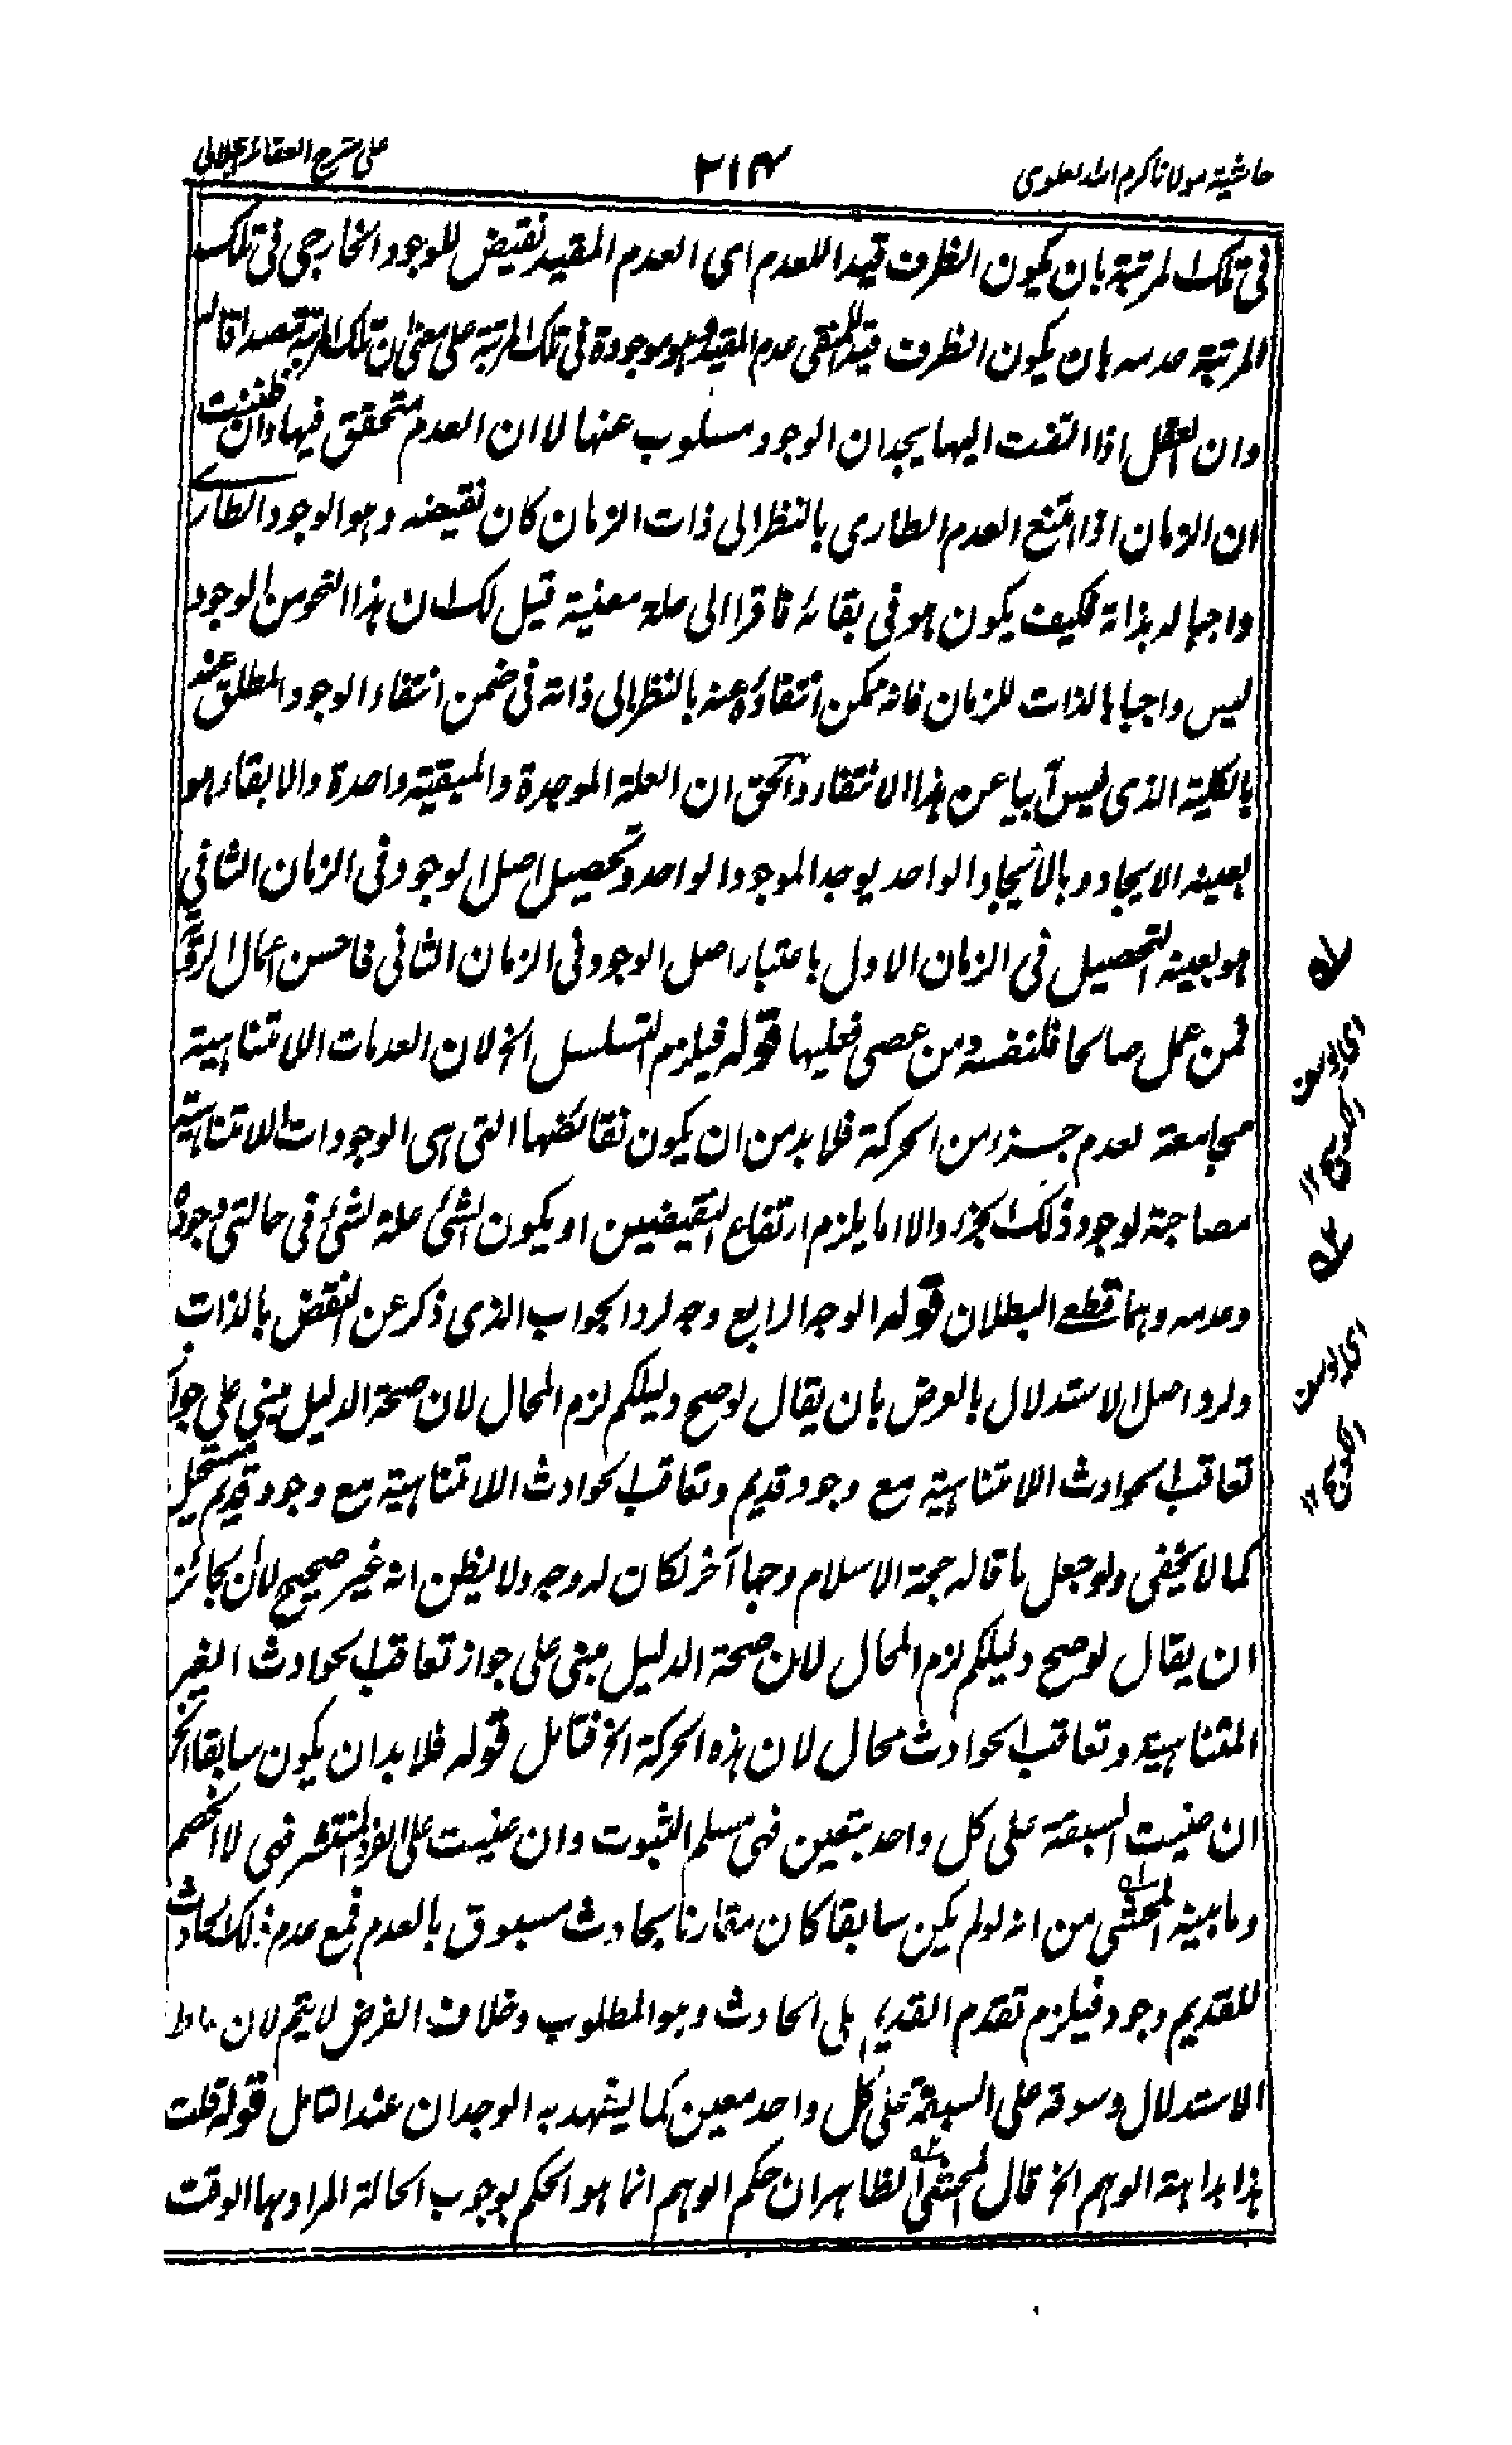 حاشیة مولانا کرم الله دهلوی
۲۱۴
علی شرح العقائد الجلالی
فی تلک المرتبة بان یکون الظرف قیدا للعدم ای العدم المقید نقیض للوجود الخارجی فی تلک
المرتبة عدمه بان یکون الظرف قیدا للمنفی عدم المقید وهو موجودة فی تلک المرتبة علی معنی ان تلک المرتبة
وان العقل اذا التفت الیها یجد ان الوجود مسلوب عنها لا ان العدم متحقق فیها وان ظننت
ان الزمان اذا امتنع العدم الطاری بالنظر الی ذات الزمان کان نقیضه وهو الوجود الطاری
واجبا له بذاته فکیف یکون هو فی بقائه فاقرا الی علة معنیة قیل لک ان هذا النحو من الوجود
لیس واجبا بالذات للزمان فانه ممکن انتفاؤه عنه بالنظر الی ذاته فی ضمن انتفاء الوجود المطلق عنه
بالکلیة الذی لیس آبیا عن هذا الانتفاء والحق ان العلة الموجدة والمبقیة واحدة والابقاء هو
بعینه الایجاد وبالایجاد الواحد یوجد الموجود الواحد وتحصیل اصل الوجود فی الزمان الثانی
هو بعینه التحصیل فی الزمان الاول باعتبار اصل الوجود فی الزمان الثانی فاحسن اعمال الرویة
فمن عمل صالحا فلنفسه ومن عصی فعلیها قوله فیلزم التسلسل الخ لان العدمات اللامتناهیة
مجامعة لعدم جزء من الحرکة فلا بد من ان یکون نقائضها التی هی الوجودات اللامتناهیة
مصاحبة لوجود ذلک الجزء والا اما یلزم ارتفاع النقیضین او یکون الشئ علة لشئ فی حالتی وجوده
وعدمه وهما قطعی البطلان قوله الوجه الرابع وجه لرد الجواب الذی ذکر عن النقض بالذات
ولرد اصل الاستدلال بالعرض بان یقال لو صح دلیلکم لزم المحال لان صحة الدلیل مبنی علی جواز
تعاقب الحوادث اللامتناهیة مع وجود قدیم وتعاقب الحوادث اللامتناهیة مع وجود قدیم مستحیل
کما لا یخفی ولو جعل ما قاله حجة الاسلام وجها آخر لکان له وجه ولا یظن انه غیر صحیح لان الجائز
ان یقال لو صح دلیلکم لزم المحال لان صحة الدلیل مبنی علی جواز تعاقب الحوادث الغیر
المتناهیة وتعاقب الحوادث محال لان هذه الحرکة الخ فتامل قوله فلا بد ان یکون سابقا الخ
ان عنیت السبقة علی کل واحد بتعین فهی مسلم الثبوت وان عنیت علی الفرد المنتشر فهی لا الخصم
وما بینه المحشی من انه لو لم یکن سابقا کان مقارنا بحادث مسبوق بالعدم فمع عدم ذلک الحادث
للقدیم وجود فیلزم تقدم القدیم علی الحادث وهو المطلوب وخلاف الفرض لا یتم لان مناط
الاستدلال وسوقه علی السبقة علی کل واحد معین کما یشهد به الوجدان عند التامل قوله قلت
هذا بداهة الوهم الخ قال المحشی الظاهر ان حکم الوهم انما هو الحکم بوجوب الحالة المراد بها الوقت